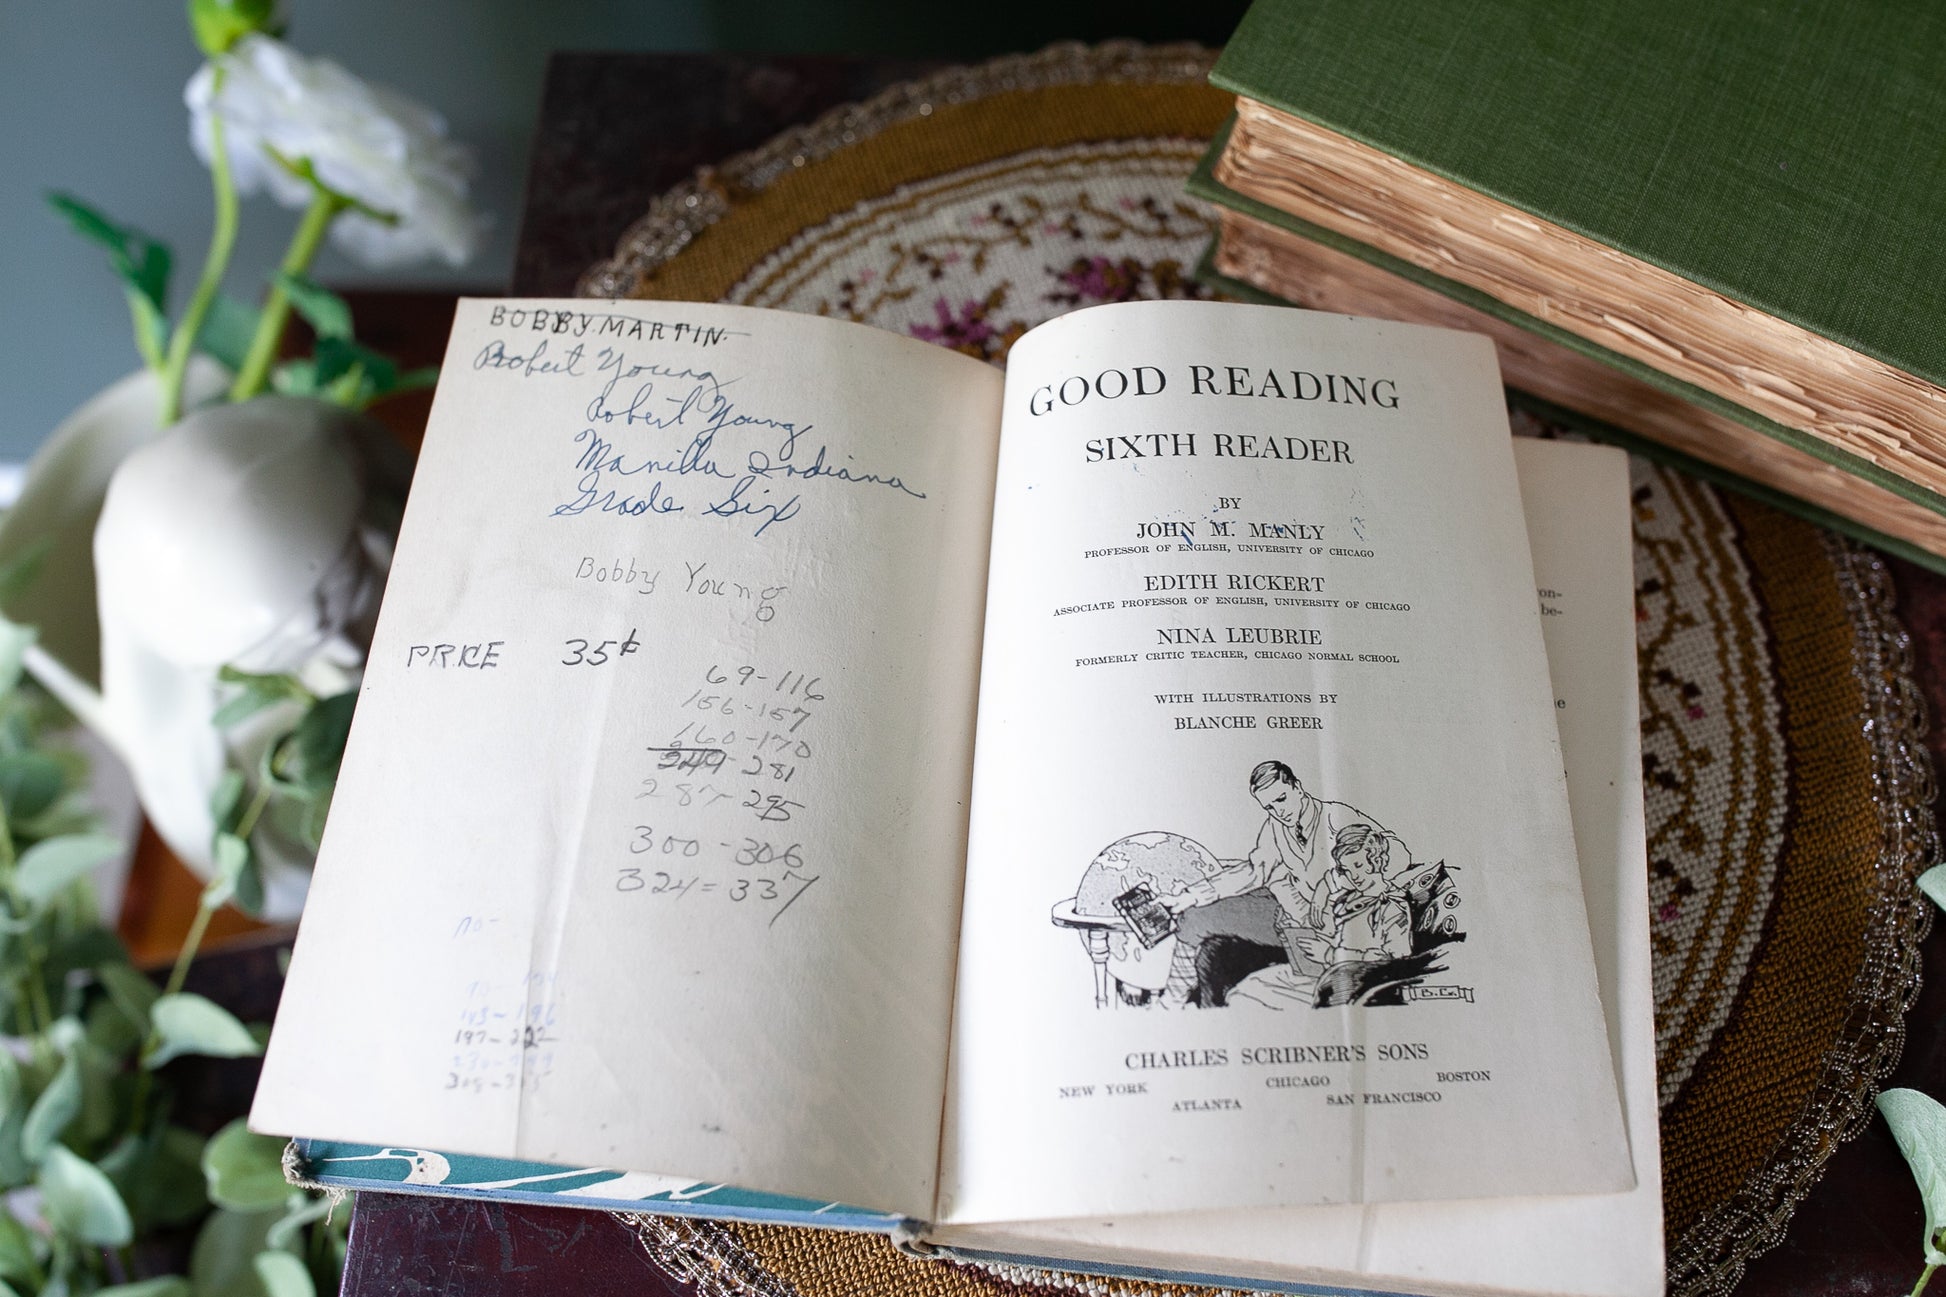 BOBBY MARTIN
Robert Young
Robert Young
Manilla Indiana
Grade Six
Bobby Young
PRICE 35¢
69-116
156-157
160-170
281
287-295
300-306
324=337
197-222
GOOD READING
SIXTH READER
BY
JOHN M. MANLY
PROFESSOR OF ENGLISH, UNIVERSITY OF CHICAGO
EDITH RICKERT
ASSOCIATE PROFESSOR OF ENGLISH, UNIVERSITY OF CHICAGO
NINA LEUBRIE
FORMERLY CRITIC TEACHER, CHICAGO NORMAL SCHOOL
WITH ILLUSTRATIONS BY
BLANCHE GREER
B. Gr.
CHARLES SCRIBNER'S SONS
NEW YORK CHICAGO BOSTON
ATLANTA SAN FRANCISCO
on-
be-